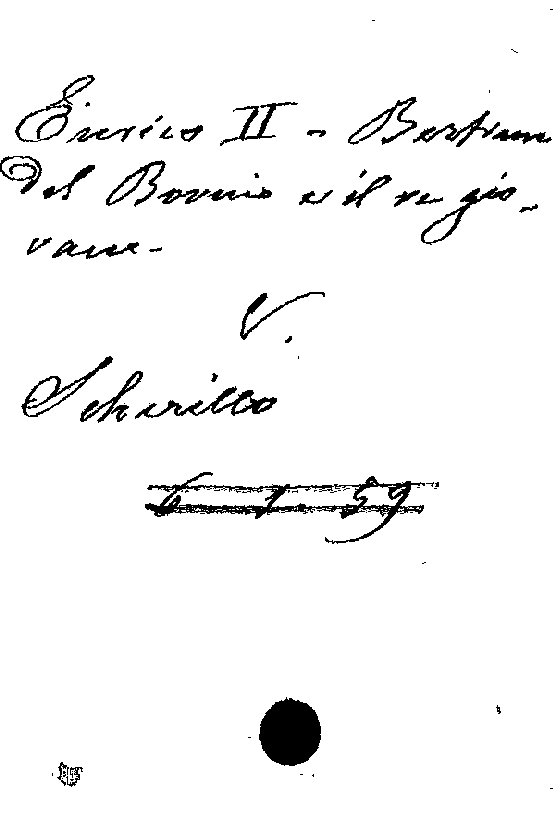 Enrico II - Bertram
del Bornio e il re gio-
vane -
V.
Scherillo
6 1 59